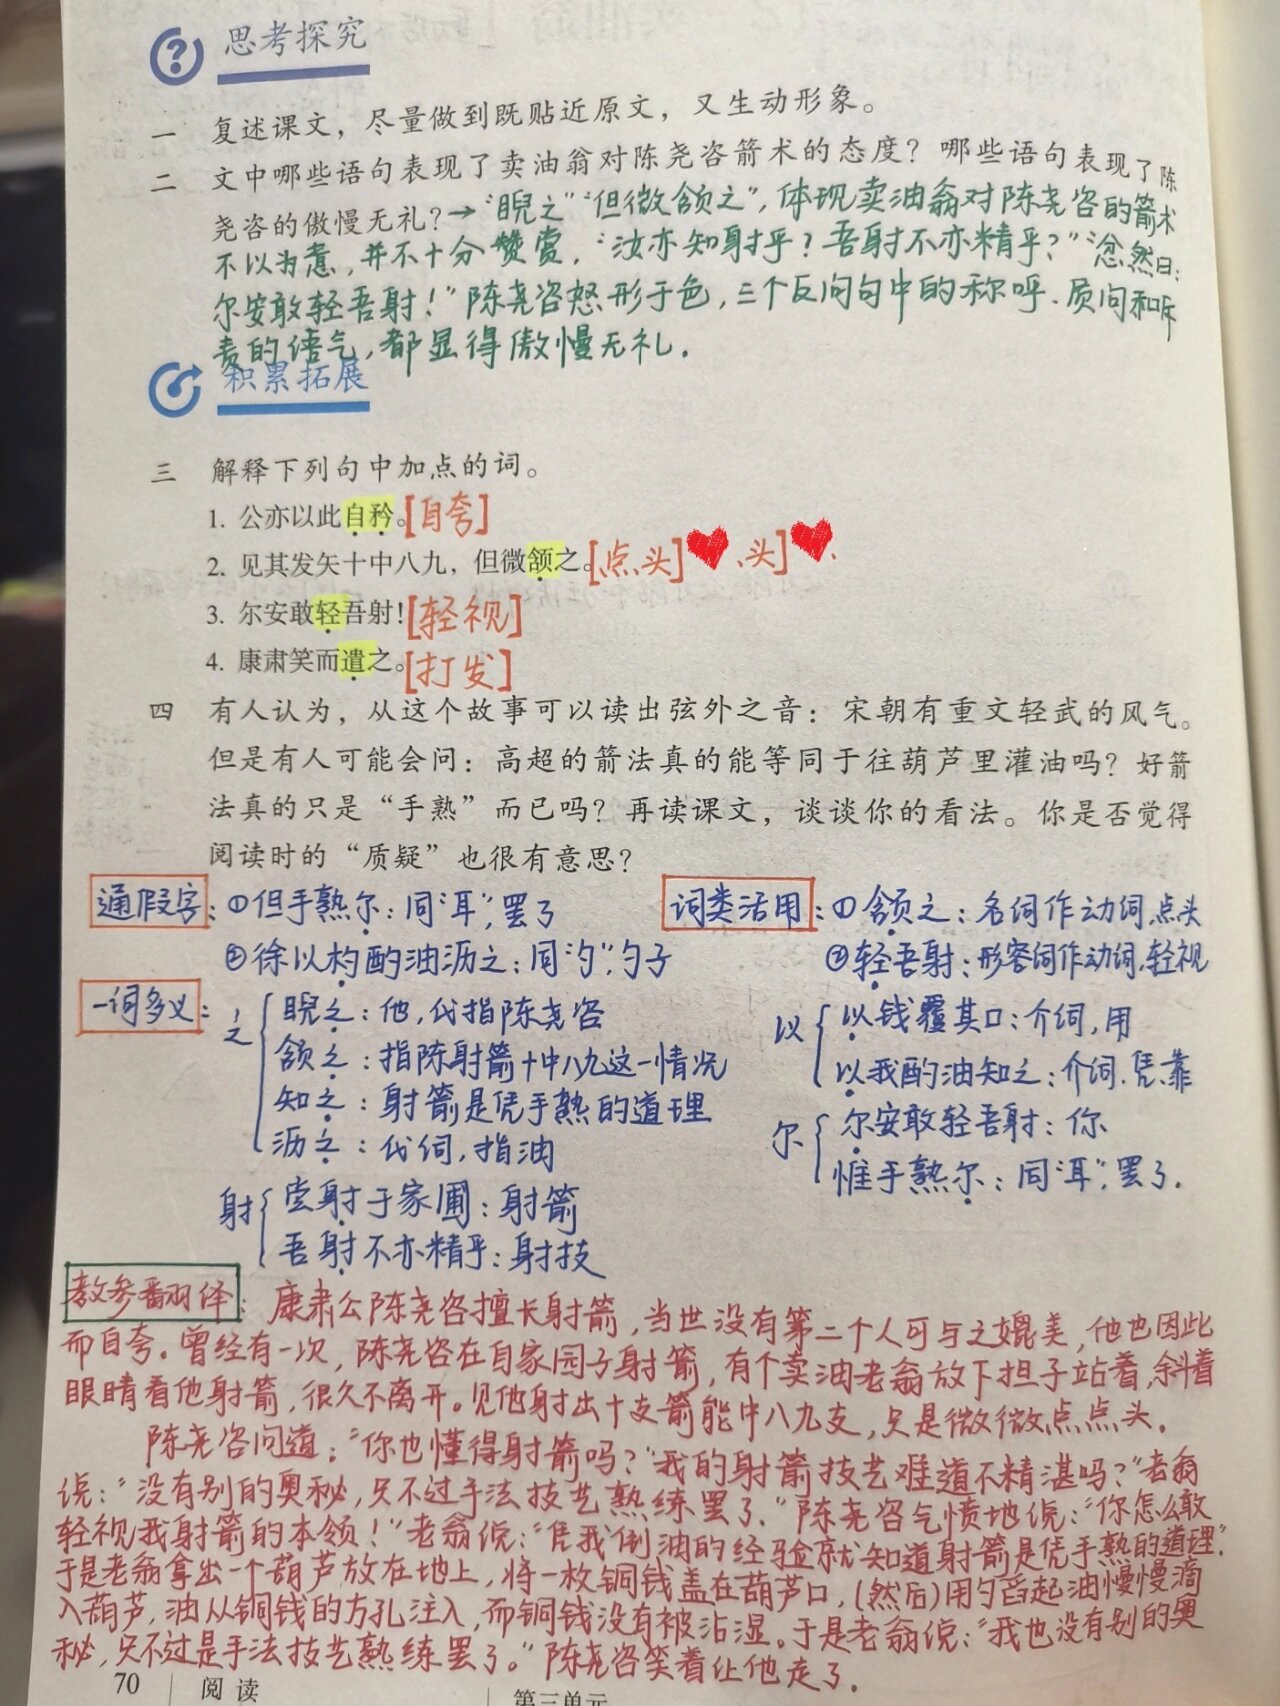 思考探究
一 复述课文，尽量做到既贴近原文，又生动形象。
二 文中哪些语句表现了卖油翁对陈尧咨箭术的态度？哪些语句表现了陈
尧咨的傲慢无礼？→“睨之”“但微颔之”，体现卖油翁对陈尧咨的箭术
不以为意，并不十分赞赏，“汝亦知射乎？吾射不亦精乎？”“忿然曰：
尔安敢轻吾射！”陈尧咨怒形于色，三个反问句中的称呼、质问和斥
责的语气，都显得傲慢无礼．
积累拓展
三 解释下列句中加点的词。
1. 公亦以此自矜。[自夸]
2. 见其发矢十中八九，但微颔之。[点头]、头]
3. 尔安敢轻吾射！[轻视]
4. 康肃笑而遣之。[打发]
四 有人认为，从这个故事可以读出弦外之音：宋朝有重文轻武的风气。
但是有人可能会问：高超的箭法真的能等同于往葫芦里灌油吗？好箭
法真的只是“手熟”而已吗？再读课文，谈谈你的看法。你是否觉得
阅读时的“质疑”也很有意思？
通假字：①但手熟尔：同“耳”，罢了
②徐以杓酌油沥之：同“勺”，勺子
词类活用：①颔之：名词作动词，点头
②轻吾射：形容词作动词，轻视
一词多义：
之
睨之：他，代指陈尧咨
颔之：指陈射箭十中八九这一情况
知之：射箭是凭手熟的道理
沥之：代词，指油
射
尝射于家圃：射箭
吾射不亦精乎：射技
以
以钱覆其口：介词，用
以我酌油知之：介词、凭靠
尔
尔安敢轻吾射：你
惟手熟尔：同“耳”，罢了．
教参翻译：康肃公陈尧咨擅长射箭，当世没有第二个人可与之媲美，他也因此
而自夸。曾经有一次，陈尧咨在自家园子射箭，有个卖油老翁放下担子站着，斜着
眼睛看他射箭，很久不离开。见他射出十支箭能中八九支，只是微微点点头．
陈尧咨问道：“你也懂得射箭吗？我的射箭技艺难道不精湛吗？”老翁
说：“没有别的奥秘，只不过手法技艺熟练罢了．”陈尧咨气愤地说：“你怎么敢
轻视我射箭的本领！”老翁说：“凭我倒油的经验就知道射箭是凭手熟的道理”．
于是老翁拿出一个葫芦放在地上，将一枚铜钱盖在葫芦口，(然后)用勺舀起油慢慢滴
入葫芦，油从铜钱的方孔注入，而铜钱没有被沾湿。于是老翁说：“我也没有别的奥
秘，只不过是手法技艺熟练罢了。”陈尧咨笑着让他走了．
70 阅读 第三单元